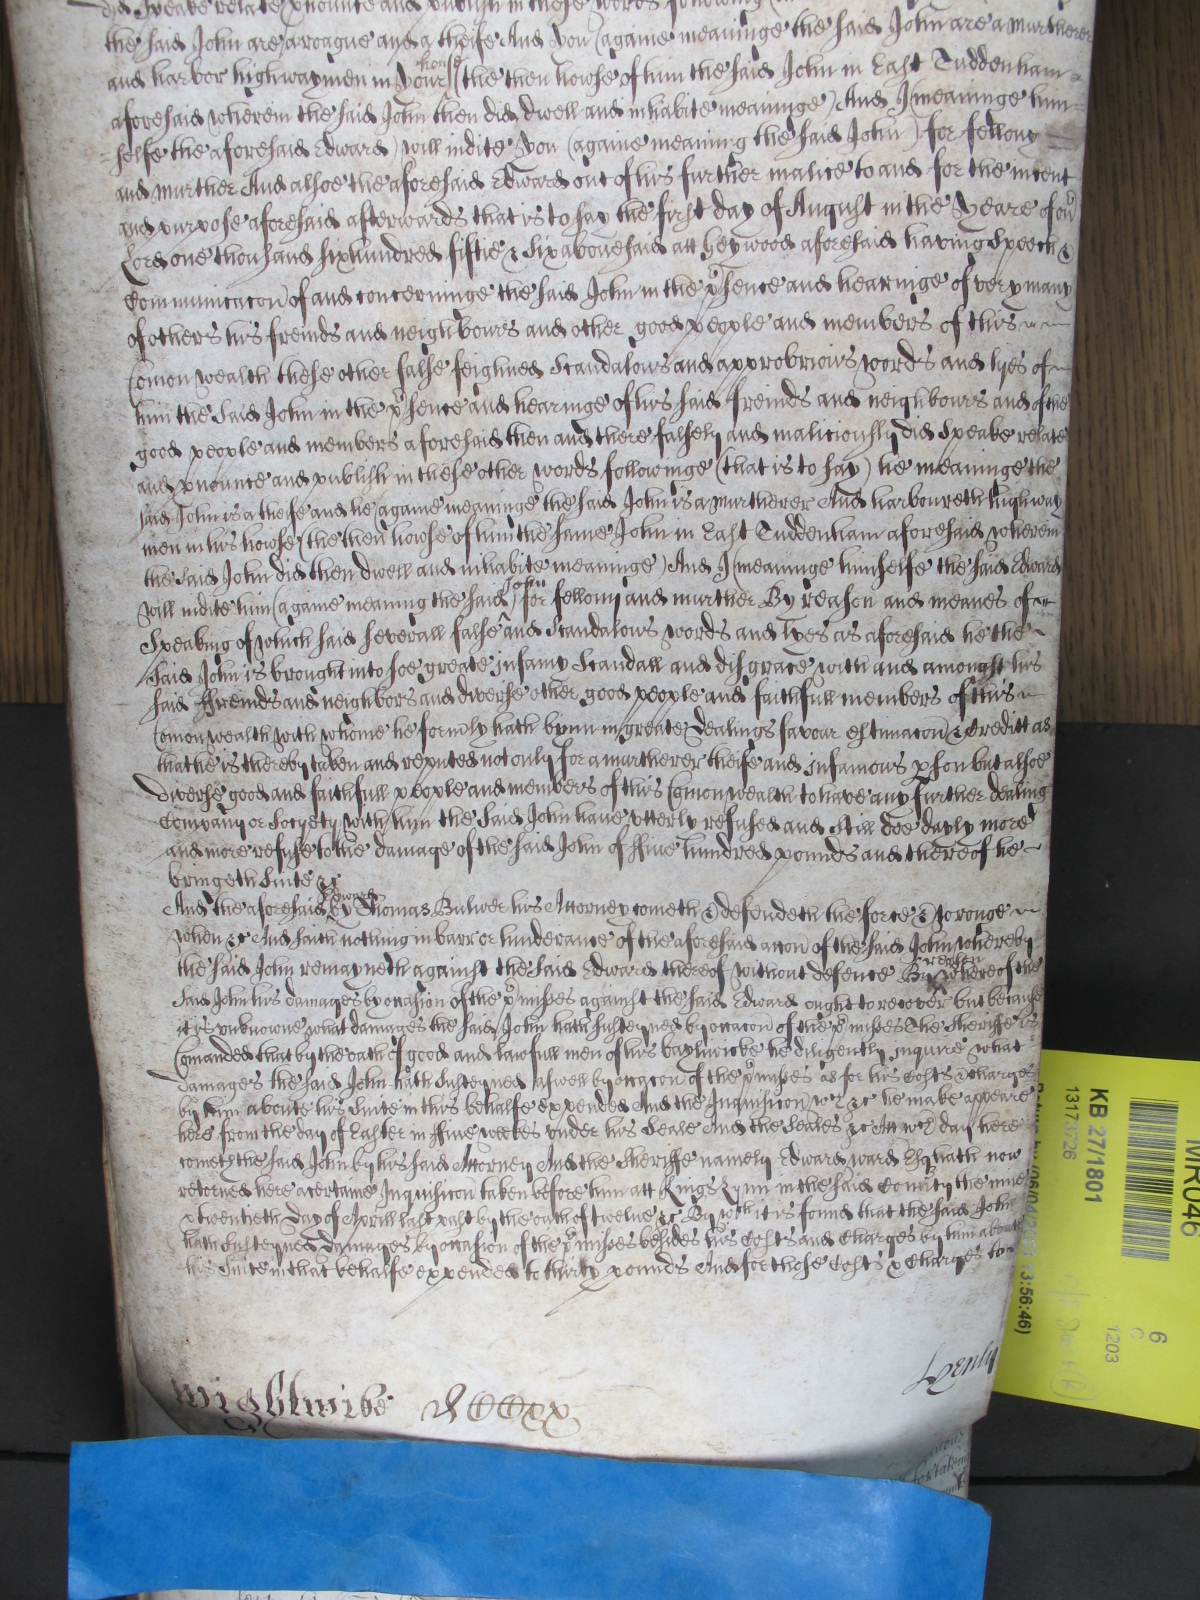 did Speake relate pnounce and publish in these words followinge
the said John are a roague and a theife And you (againe meaninge the said John are a Murtherer
and harbor highwaymen in your house (the then howse of him the said John in East Tuddenham
aforesaid wherein the said John then did dwell and inhabite meaninge) And I (meaninge him
selfe the aforesaid Edward) will indite you (againe meaning the said John) for fellony
and murther And alsoe the aforesaid Edward out of his further malice to and for the intent
and purpose aforesaid afterwards that is to say the first day of August in the yeare of our
Lord one thousand sixhundred fiftie & Six abovesaid att Heywood aforesaid having Speech &
Communicacon of and concerninge the said John in the psence and hearinge of very many
of others his freinds and neighbours and other good people and members of this
Comon wealth these other false feighned Scandalous and approbrious words and lyes of
him the Said John in the psence and hearinge of his said freinds and neighbours and of the
good people and members aforesaid then and there falsely and maliciously did Speake relate
and pnounce and publish in these other words followinge (that is to say) he meaninge the
said John is a theife and he (againe meaninge the said John is a murtherer And harboureth highway
men in his howse (the then howse of him the same John in East Tuddenham aforesaid wherein
the Said John did then dwell and inhabite meaninge) And I (meaninge himselfe the said Edward
will indite him (againe meaning the said John) for fellony and murther By reason and meanes of
Speaking of which said severall false and Scandalous words and lyes as aforesaid he the
Said John is brought into soe greate infamy Scandall and disgrace with and amongst his
said Freinds and neighbors and diverse other good people and faithfull members of this
Comon wealth with whome he formly hath bynn in greate dealings favour estimacon & Creditt as
that he is thereby taken and reputed not only for a murtherer theife and infamous pson but alsoe
diverse good and faithfull people and members of this Comon wealth to have any further dealing
Company or Society with him the Said John have utterly refused and still doe dayly more
and more refuse to the damage of the said John of ffive hundred pounds and thereof he
bringeth suite &c
And the aforesaid Edward by Thomas Bulwer his Attorney cometh & defendeth the force & wronge
when &c And saith nothing in barr or hinderance of the aforesaid accon of the said John whereby
the said John remayneth against the said Edward thereof without defence By reason whereof the
Said John his damages by occasion of the pmisses against the said Edward ought to recover but because
it is unknowne what damages the said John hath susteyned by occacon of the pmisses The Sheriffe is
Comanded that by the oath of good and lawfull men of his baylywicke he diligently inquire what
damages the said John hath susteyned aswell by occacon of the pmisses as for his Costs & charges
by him aboute his Suite in this behalfe expended And the Inquisicon wch &c he make appeare
here from the day of Easter in ffive weekes under his Seale And the Seales &c Att wch day here
cometh the said John by his said Attorney And the Sheriffe namely Edward Ward Esq hath now
retorned here a certaine Inquisicon taken before him att Kings Lynn in the said County the nine
& twentieth day of Aprill last past by the oath of twelve &c By wch it is found that the said John
hath susteyned damages by occasion of the pmisses besides his Costs and Charges by him about
his suite in that behalfe expended to thirty pounds And for those Costs & Charges to
Wightwike
KB 27/1801
13173726
MR046
6
C
1203
13:56:46)